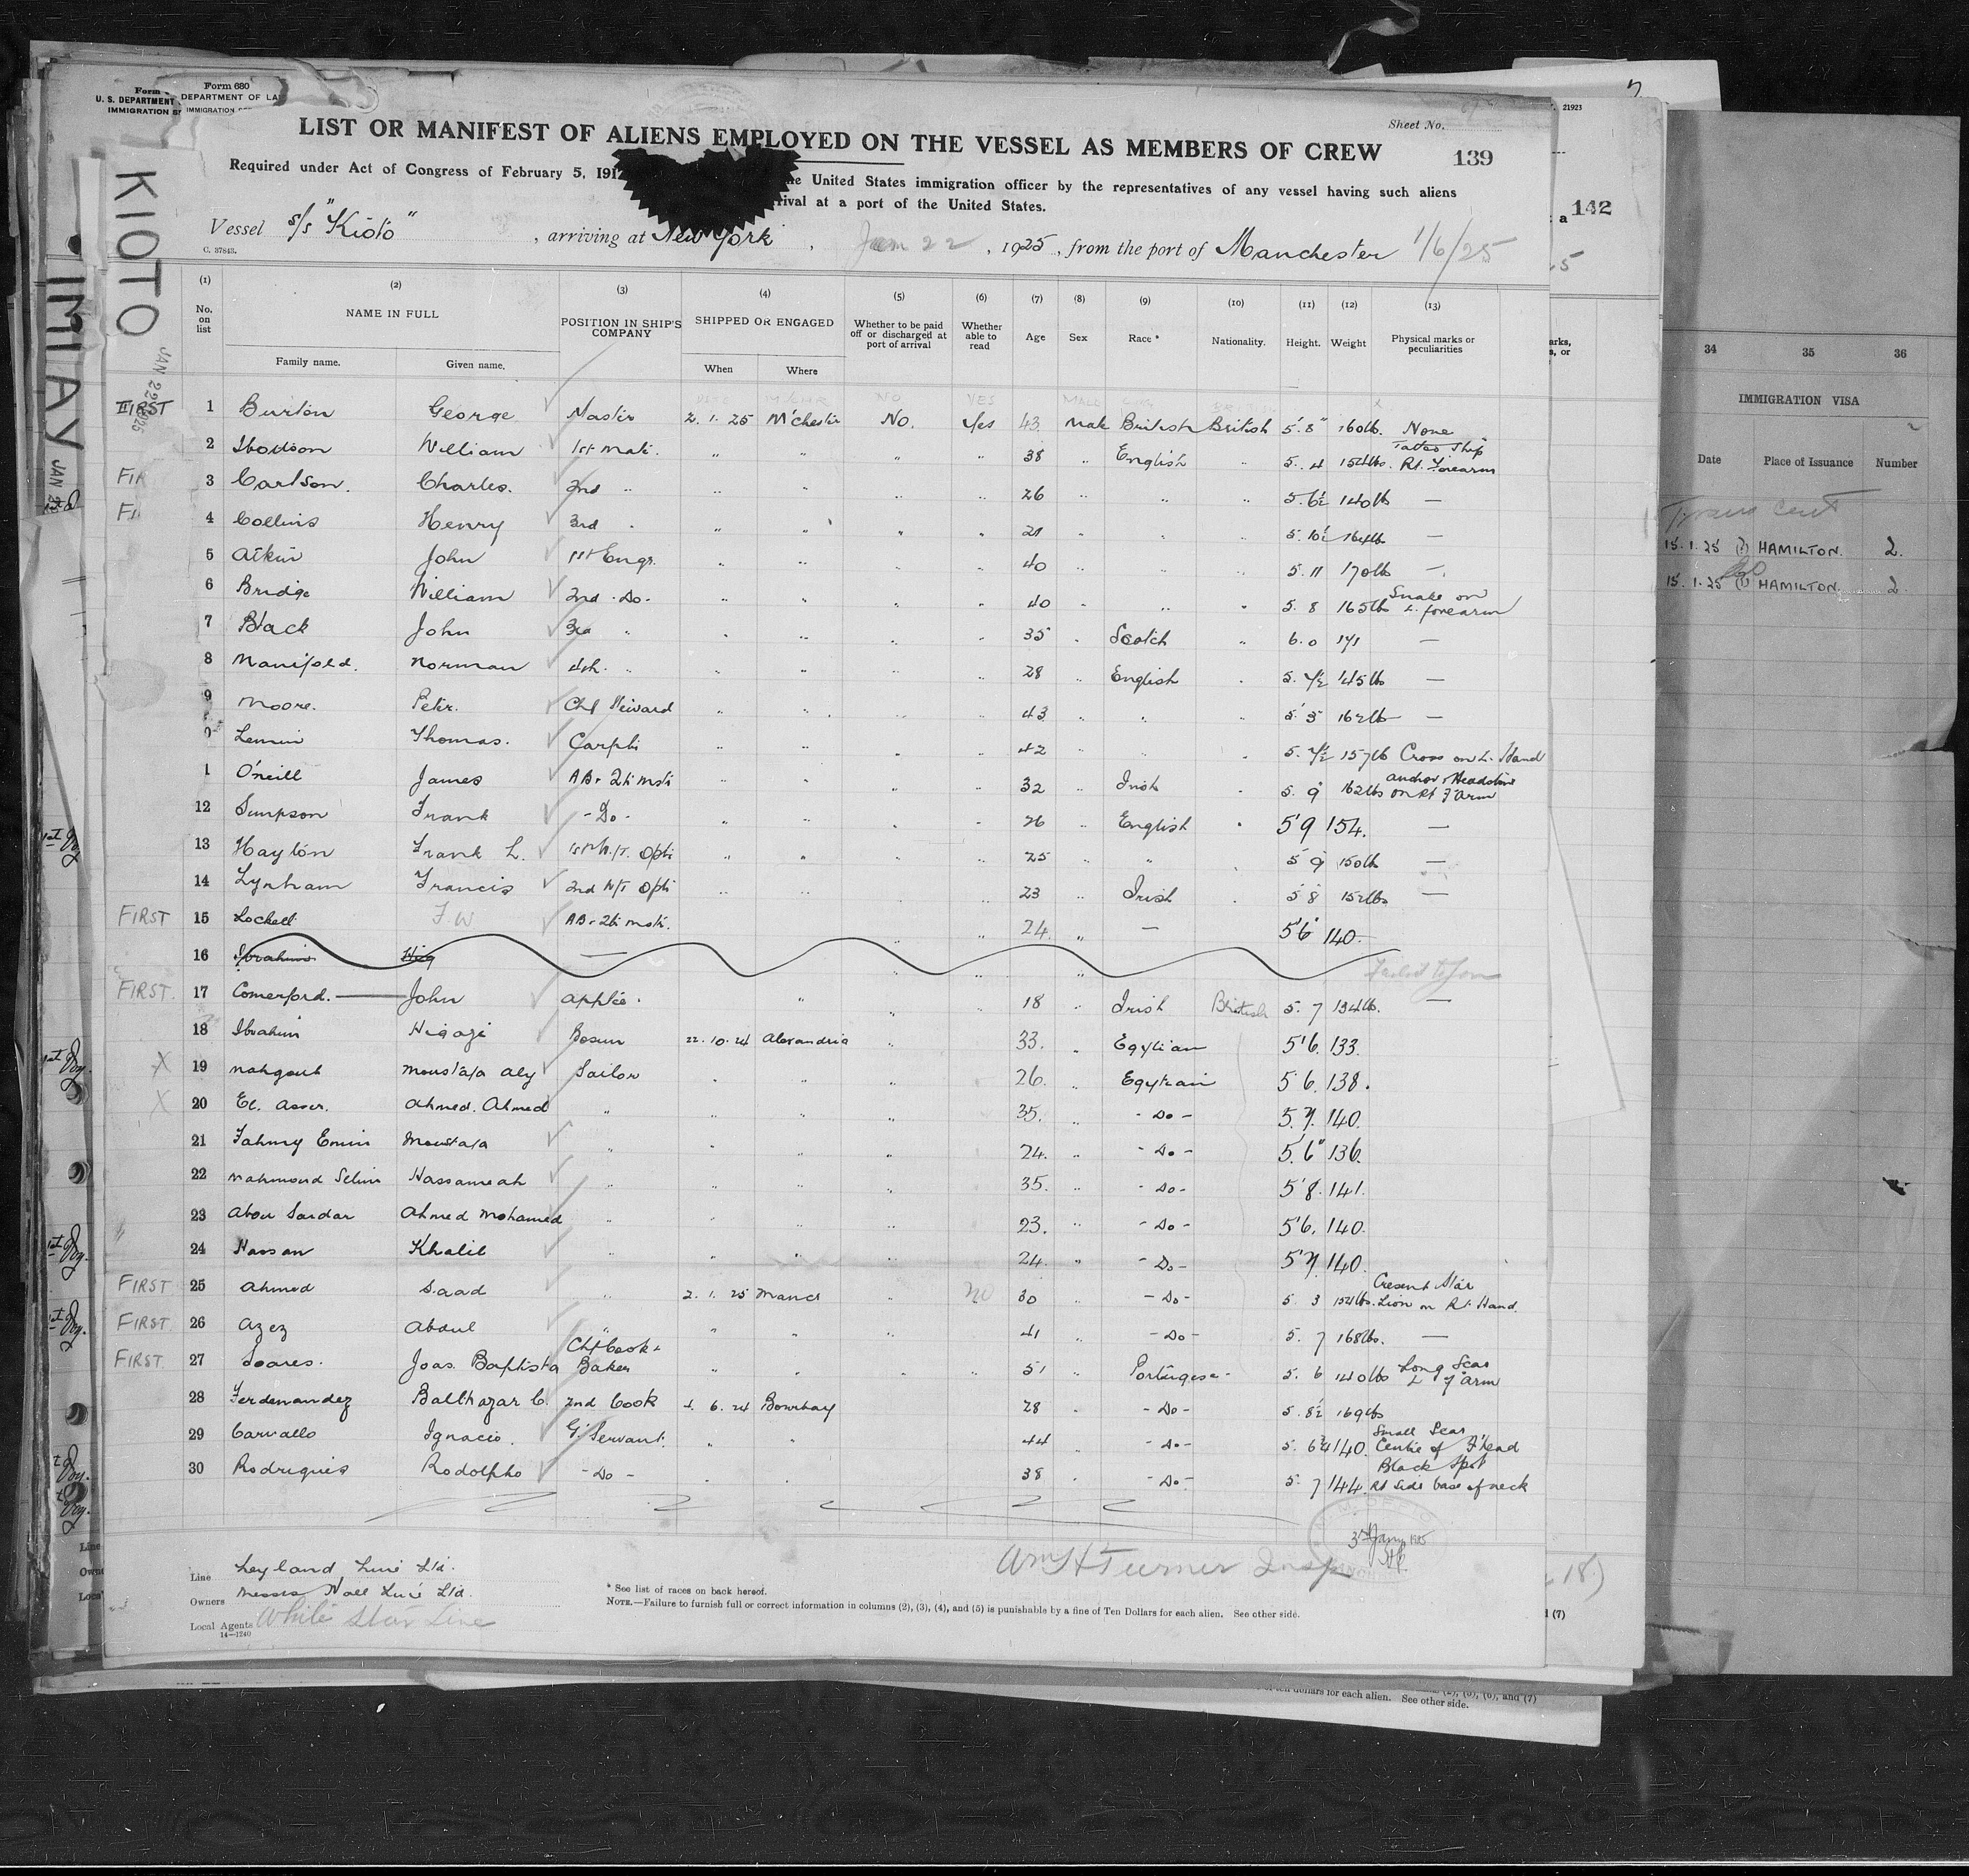 Form 680
U. S. DEPARTMENT DEPARTMENT OF LA
IMMIGRATION
LIST OR MANIFEST OF ALIENS EMPLOYED ON THE VESSEL AS MEMBERS OF CREW
Sheet No.
139
Required under Act of Congress of February 5, 191 United States immigration officer by the representatives of any vessel having such aliens
at a port of the United States.
Vessel s/s "Kioto", arriving at New York, Jan 22, 1925, from the port of Manchester 1/6/25
C. 37843.
KIOTO
JAN 22 1925
IMLAY
(1) (2) (3) (4) (5) (6) (7) (8) (9) (10) (11) (12) (13)
No. on list NAME IN FULL POSITION IN SHIP'S COMPANY SHIPPED OR ENGAGED Whether to be paid off or discharged at port of arrival Whether able to read Age Sex Race * Nationality. Height. Weight Physical marks or peculiarities
Family name. Given name. When Where
FIRST 1 Burton George Master 2. 1. 25 M'chester No. Yes 43 Male British British 5'. 8" 160lb. None
2 William 1st Mate. " " " " 38 " English " 5. 4 154lbs. Tattoo Ship Rt. Forearm
3 Carlson. Charles. 2nd " " " " " 26 " " " 5. 6½ 140lb —
4 Collins Henry 3rd " " " " " 21 " " " 5. 10½ 164lb —
5 Aitkin John 1st Engr. " " " " 40 " " " 5. 11 170lb —
6 Bridge William 2nd - Do - " " " " 40 " " " 5. 8 165lb Snake on L. forearm
7 Black John 3rd " " " " " 35 " Scotch " 6. 0 171 —
8 Manifold. Norman 4th. " " " " " 28 " English " 5. 7½ 145lb —
9 Moore. Peter. Chf Steward " " " " 43 " " " 5. 5 162lb —
Thomas. " " " " 42 " " " 5. 7½ 157lb Cross on L. Hand
1 O'neill James " " " " 32 " Irish " 5. 9 162lbs Anchor & Headstone on Rt F'Arm
12 Simpson Frank - Do - " " " " 26 " English " 5'9 154. —
13 Hayton Frank L. 1st W/T. Opr " " " " 25 " " " 5 9 150lb —
14 Lynham Francis 2nd W/T Opr " " " " 23 " Irish " 5 8 152lbs —
FIRST 15 Lockett F W " " 24. " — 5'6 140.
16 Ibrahim Hig — " " " Failed to Join
FIRST. 17 Comerford. John " " 18 " Irish British 5. 7 134lb. —
18 Ibrahim Higazi Bosun 22. 10. 24 Alexandria " 33. " Egytian 5'6. 133.
19 Mahgoub Moustafa Aly Sailor " " " 26. " Egytian 5'6. 138.
20 El. Asser. Ahmed. Ahmed " " " " 35. " - Do - 5. 7. 140.
21 Fahmy Emin Moustafa " " " " 24. " - Do - 5.'6" 136.
22 Mahmoud Selim Hassaneah " " " " 35. " - Do - 5'8. 141.
23 Abou Sardar Ahmed Mohamed " " " " 23. " - Do - 5'6. 140.
24 Hassan Khalil " " " " 24. " - Do - 5'7. 140.
FIRST 25 Ahmed Saad " 2. 1. 25 Manch " no 30 " - Do - 5. 3 154lbs. Cresent Star Lion on Rt. Hand.
FIRST. 26 Azez Abdul " " " " 41 " - Do - 5. 7 168lbs. —
FIRST. 27 Soares. Joas. Baptista Chf Cook & Baker " " " " 51 " Portugese - 5. 6 140lbs Long Scar L F'Arm
28 Ferdenandez Balthazar C. 2nd Cook 4. 6. 24 Bombay 28 " - Do - 5. 8½ 169lbs
29 Carvallo Ignacio. G. Servant. " " 44 - Do - 5. 6¾ 140. Small Scar Centre of F'head
30 Rodrigues Rodolpho - Do - " " 38 " - Do - 5. 7 144. Black Spot Rt side base of neck
3rd Jany 1925
Wm H Turner Insp
Line Leyland Line Ltd.
Owners Messrs Hall Line Ltd.
Local Agents White Star Line
14—1240
* See list of races on back hereof.
NOTE.—Failure to furnish full or correct information in columns (2), (3), (4), and (5) is punishable by a fine of Ten Dollars for each alien. See other side.
21923
142
34 35 36
IMMIGRATION VISA
Date Place of Issuance Number
15. 1. 25 HAMILTON. 2.
15. 1. 25 HAMILTON. 2.
18)
(7)
ten dollars for each alien. See other side.